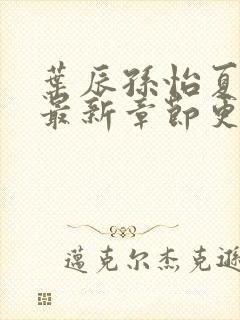 葉辰孫怡夏
最新章節更
邁克尔杰克遜